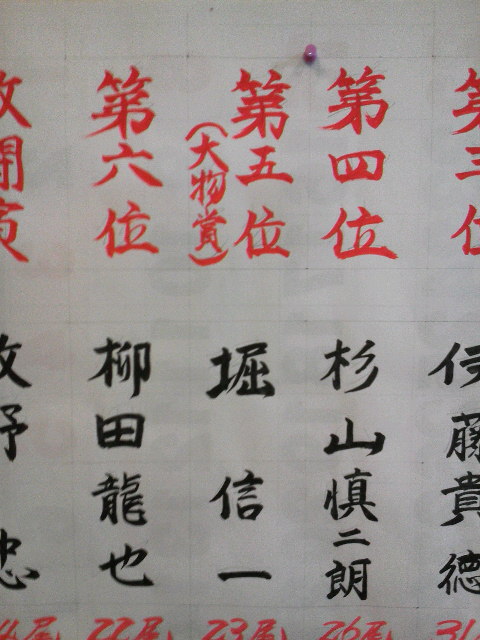 第三位
伊藤貴徳
31
第四位
杉山慎二朗
26尾
第五位
(大物賞)
堀 信一
23尾
第六位
柳田龍也
22尾
敢闘賞
牧野 忠